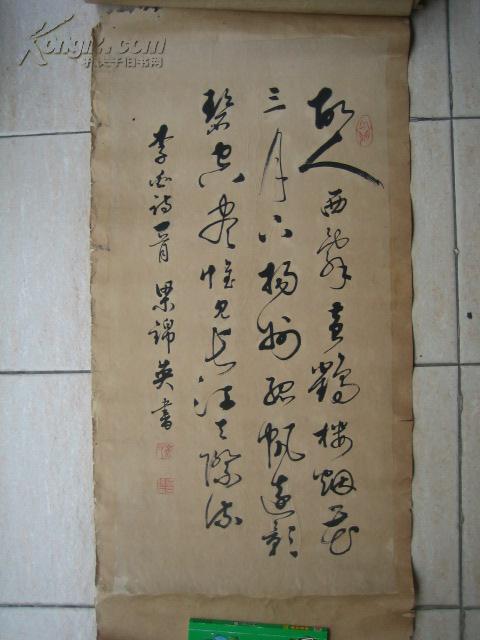 故人西辞黄鹤楼烟花
三月下扬州孤帆远影
碧空尽惟见长江天际流
李白诗一首 锦英书
Kongfz.com
孔夫子旧书网